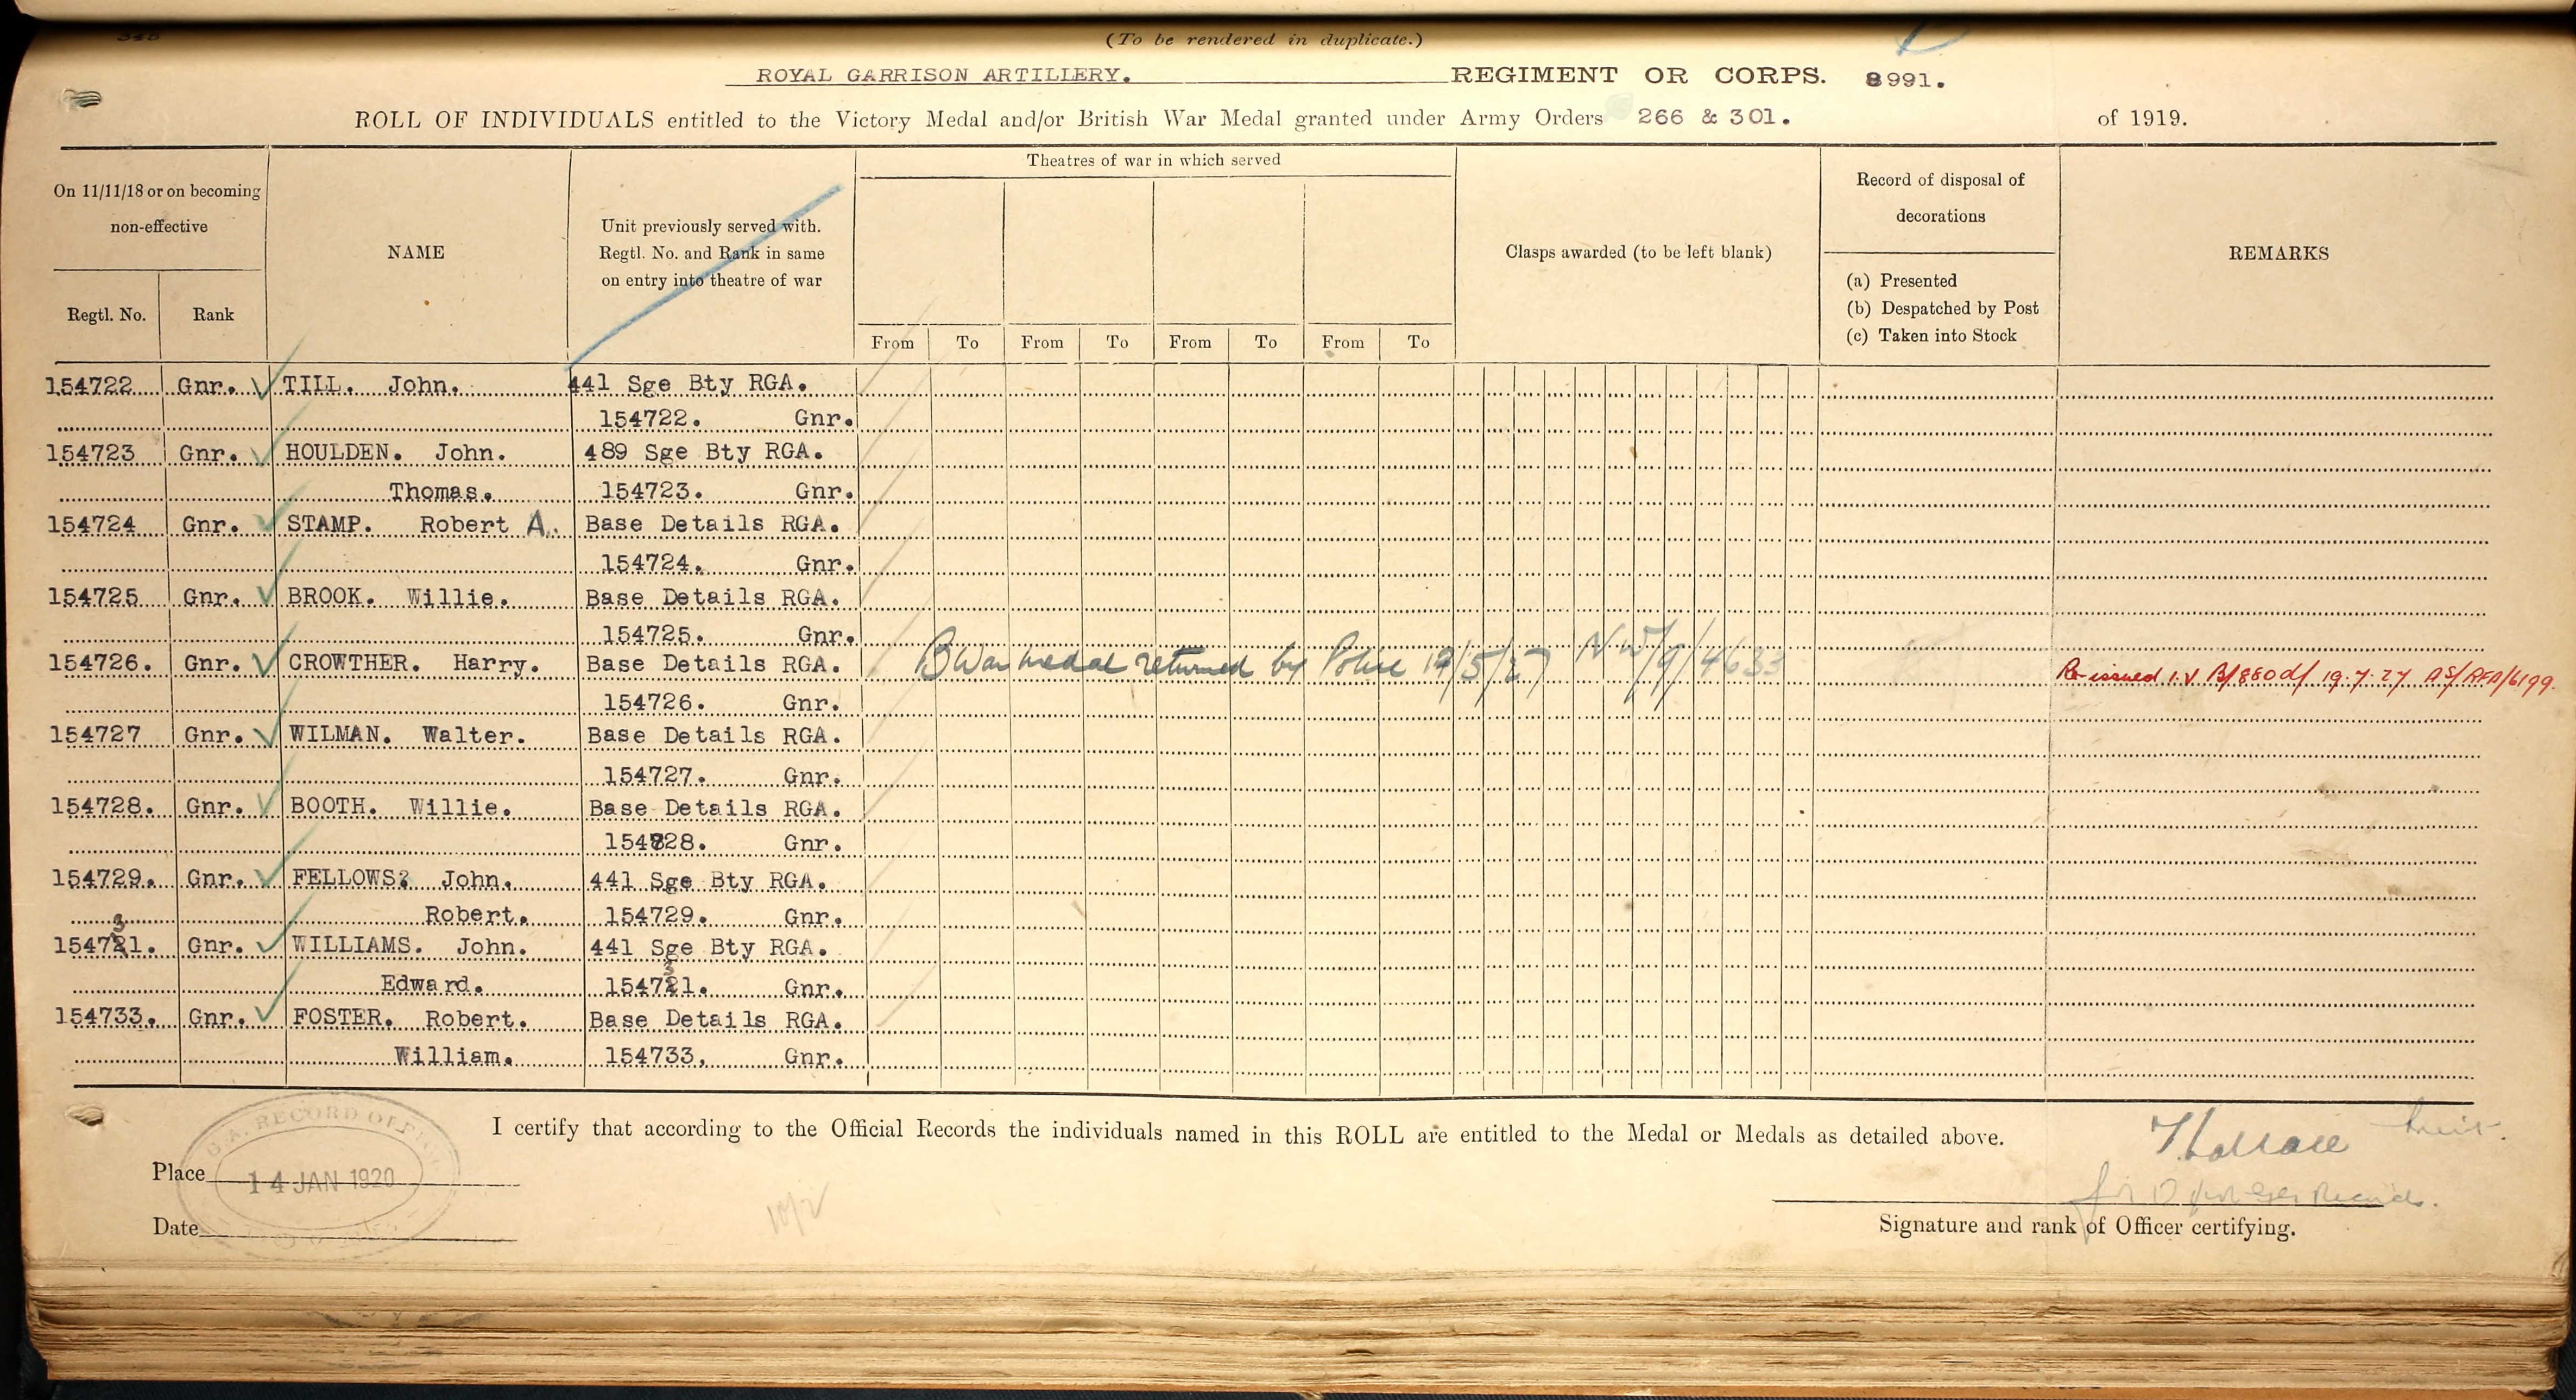 (To be rendered in duplicate.)
ROYAL GARRISON ARTILLERY. REGIMENT OR CORPS. 8991.
ROLL OF INDIVIDUALS entitled to the Victory Medal and/or British War Medal granted under Army Orders 266 & 301. of 1919.
On 11/11/18 or on becoming non-effective
Regtl. No. Rank
NAME
Unit previously served with.
Regtl. No. and Rank in same
on entry into theatre of war
Theatres of war in which served
From To From To From To From To
Clasps awarded (to be left blank)
Record of disposal of
decorations
(a) Presented
(b) Despatched by Post
(c) Taken into Stock
REMARKS
154722 Gnr. TILL. John. 441 Sge Bty RGA.
154722. Gnr.
154723 Gnr. HOULDEN. John. 489 Sge Bty RGA.
Thomas. 154723. Gnr.
154724 Gnr. STAMP. Robert A. Base Details RGA.
154724. Gnr.
154725 Gnr. BROOK. Willie. Base Details RGA.
154725. Gnr.
154726. Gnr. CROWTHER. Harry. Base Details RGA. B War medal returned by Police 19/5/27 NW/9/4633 Re-issued I.V. B/880 d/ 19.7.27 AS/RFA/6199.
154726. Gnr.
154727 Gnr. WILMAN. Walter. Base Details RGA.
154727. Gnr.
154728. Gnr. BOOTH. Willie. Base Details RGA.
154728. Gnr.
154729. Gnr. FELLOWS? John. 441 Sge Bty RGA.
Robert. 154729. Gnr.
154731. Gnr. WILLIAMS. John. 441 Sge Bty RGA.
Edward. 154731. Gnr.
154733. Gnr. FOSTER. Robert. Base Details RGA.
William. 154733, Gnr.
I certify that according to the Official Records the individuals named in this ROLL are entitled to the Medal or Medals as detailed above.
G.A. RECORD OFFICE
Place 14 JAN 1920
Date
Signature and rank of Officer certifying.